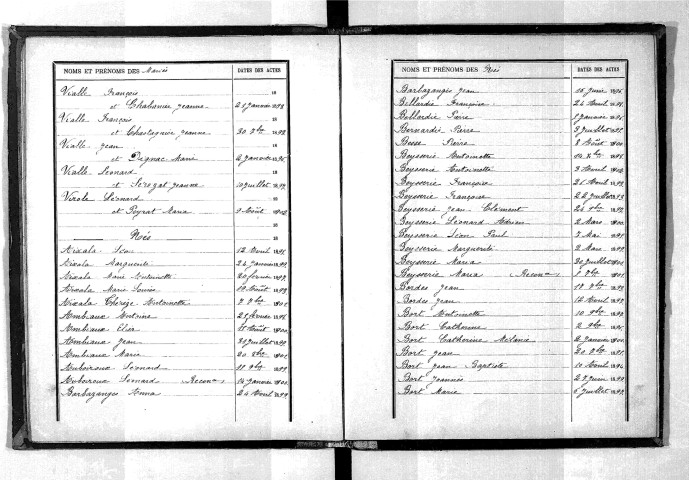 NOMS ET PRÉNOMS DES Mariés DATES DES ACTES
Vialle François 18
et Chabanier Jeanne 21 Janvier 1893
Vialle François 18
et Chastagnier Jeanne 30 Xbre 1892
Vialle Jean 18
et Marie Janvier
Vialle Léonard 18
et Jeanne 10 Juillet 1899
Léonard 18
et Peyrat Maria Août 1902
18
Nés 18
Aixala Léon 12 Avril 1895
Aixala Marguerite 24 Janvier 1899
Aixala Marie Antoinette 20 février 1897
Aixala Marie Louise 19 Août 1893
Aixala Thérèze Antoinette 7 Xbre 1901
Ambiaux Antoine 21 février 1896
Ambiaux Elise Août 1900
Ambiaux Jean 31 Juillet 1899
Ambiaux Marie 20 Xbre 1901
Auboiroux Léonard 18
Auboiroux Léonard (Reconce) 14 Janvier
Barbazanges Anna 24 Avril 1899
NOMS ET PRÉNOMS DES Nés DATES DES ACTES
Barbazanges Jean 15 Juin 1896
Bellardie Françoise 24 Avril 1898
Bellardie Pierre Janvier 1896
Bernardie Pierre 3 Juillet 1895
Besse Pierre 8 Août 1900
Beysserie Antoinette 14 Xbre 1895
Beysserie Antoinette 3 Avril 1902
Beysserie Françoise 21 Avril 1899
Beysserie Françoise 22 Juillet 1893
Beysserie Jean Clément 1899
Beysserie Léonard Adrien 2 Mars 1900
Beysserie Léon Paul 7 Mai 1895
Beysserie Marguerite 2 Mars 1899
Beysserie Maria 30 Juillet 1901
Beysserie Maria (Reconce) 1901
Bordes Jean 1893
Bordes Jean 12 Avril 1899
Bort Antoinette 10 1892
Bort Catherine 2 1895
Bort Catherine Mélanie 2 Janvier 1901
Bort Jean 20 1895
Bort Jean Baptiste 10 Avril 1896
Bort Jeannès 27 Juin 1899
Bort Marie Juillet 1897